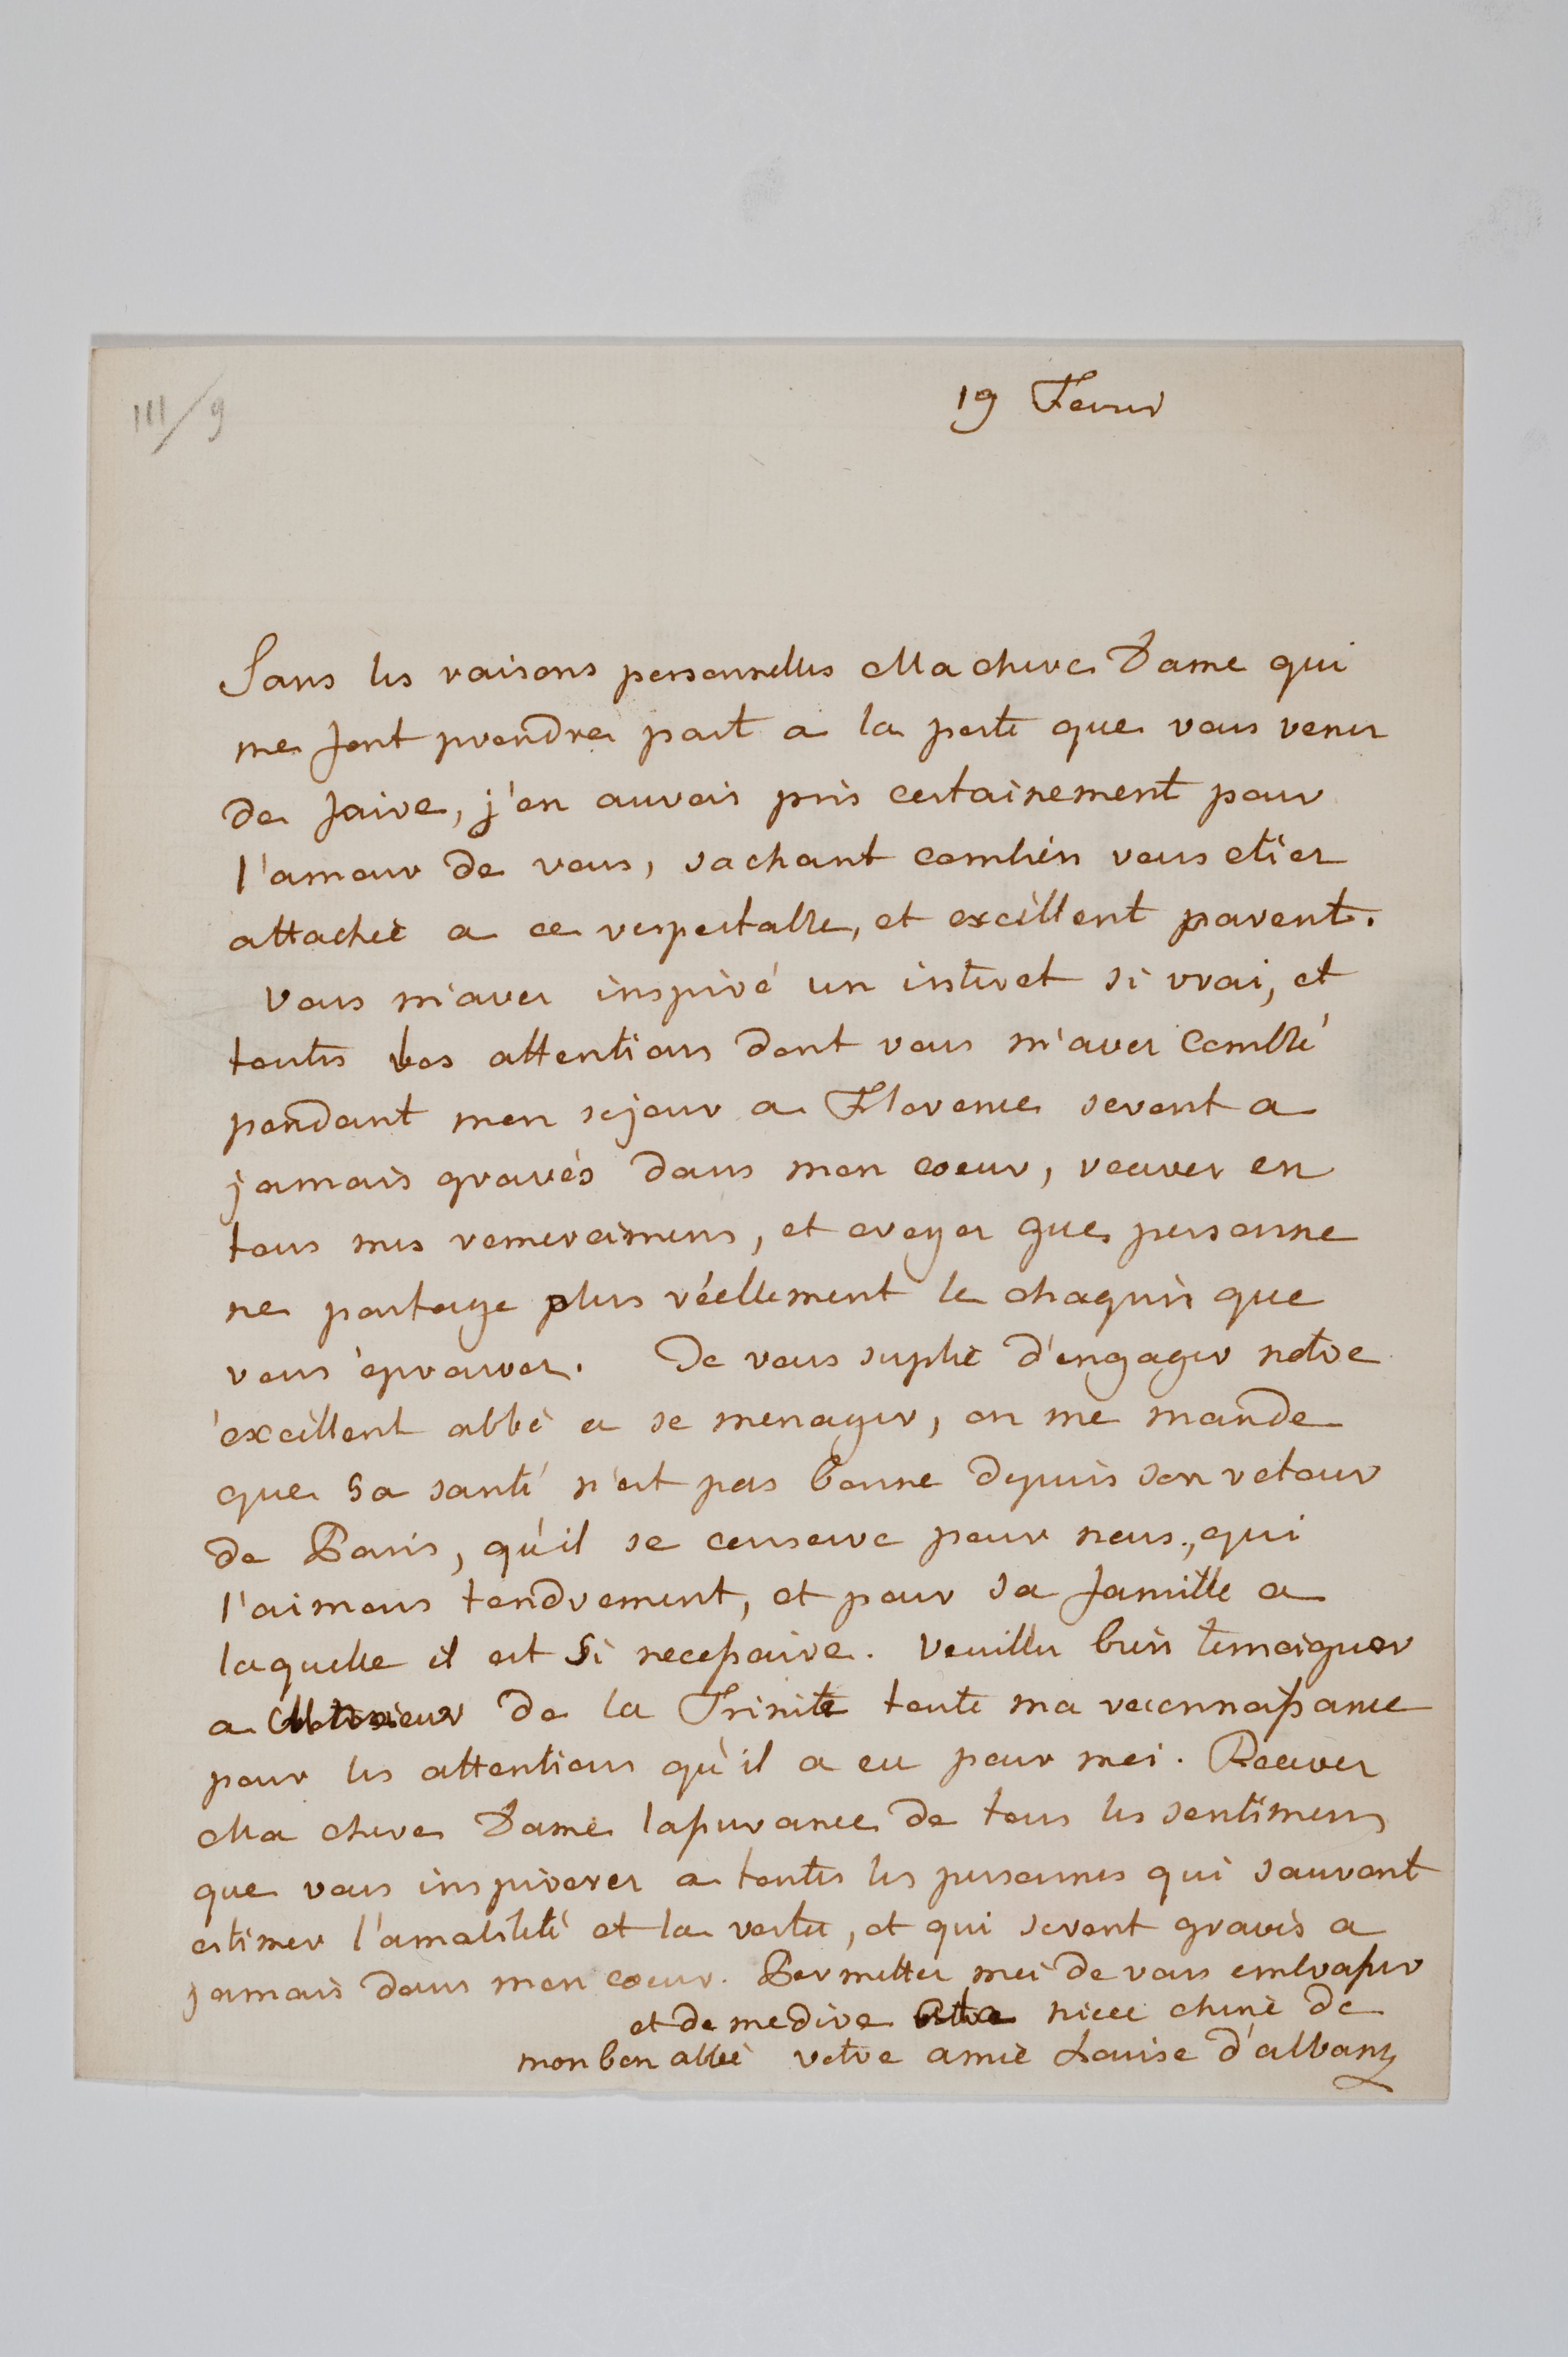 III/9
19 Fevrier
Sans les raisons personnelles Ma chere Dame qui
me font prendre part a la perte que vous venez
de faire, j'en aurois pris certainement pour
l'amour de vous, sachant combien vous etiez
attachée a ce respectable, et excellent parent.
Vous m'avez inspiré un interet si vrai, et
toutes les attentions dont vous m'avez comblé
pendant mon sejour a Florence seront a
jamais gravés dans mon coeur, recevez en
tous mes remerciemens, et croyez que personne
ne partage plus réellement le chagrin que
vous éprouvez. Je vous suplie d'engager notre
éxcellent abbé a se menager, on me mande
que sa santé n'est pas bonne depuis son retour
de Paris, qu'il se conserve pour nous, qui
l'aimons tendrement, et pour sa famille a
laquelle il est si necessaire. Veuillez bien temoigner
a Monsieur de la Trinité toute ma reconnaissance
pour les attentions qu'il a eu pour moi. Recevez
Ma chere Dame l'assurance de tous les sentimens
que vous inspirerez a toutes les personnes qui sauront
estimer l'amabilité et la vertu, et qui seront gravés a
jamais dans mon coeur. Permettez moi de vous embrasser
et de me dire niece cherie de
mon bon abbé votre amie Louise d'albany